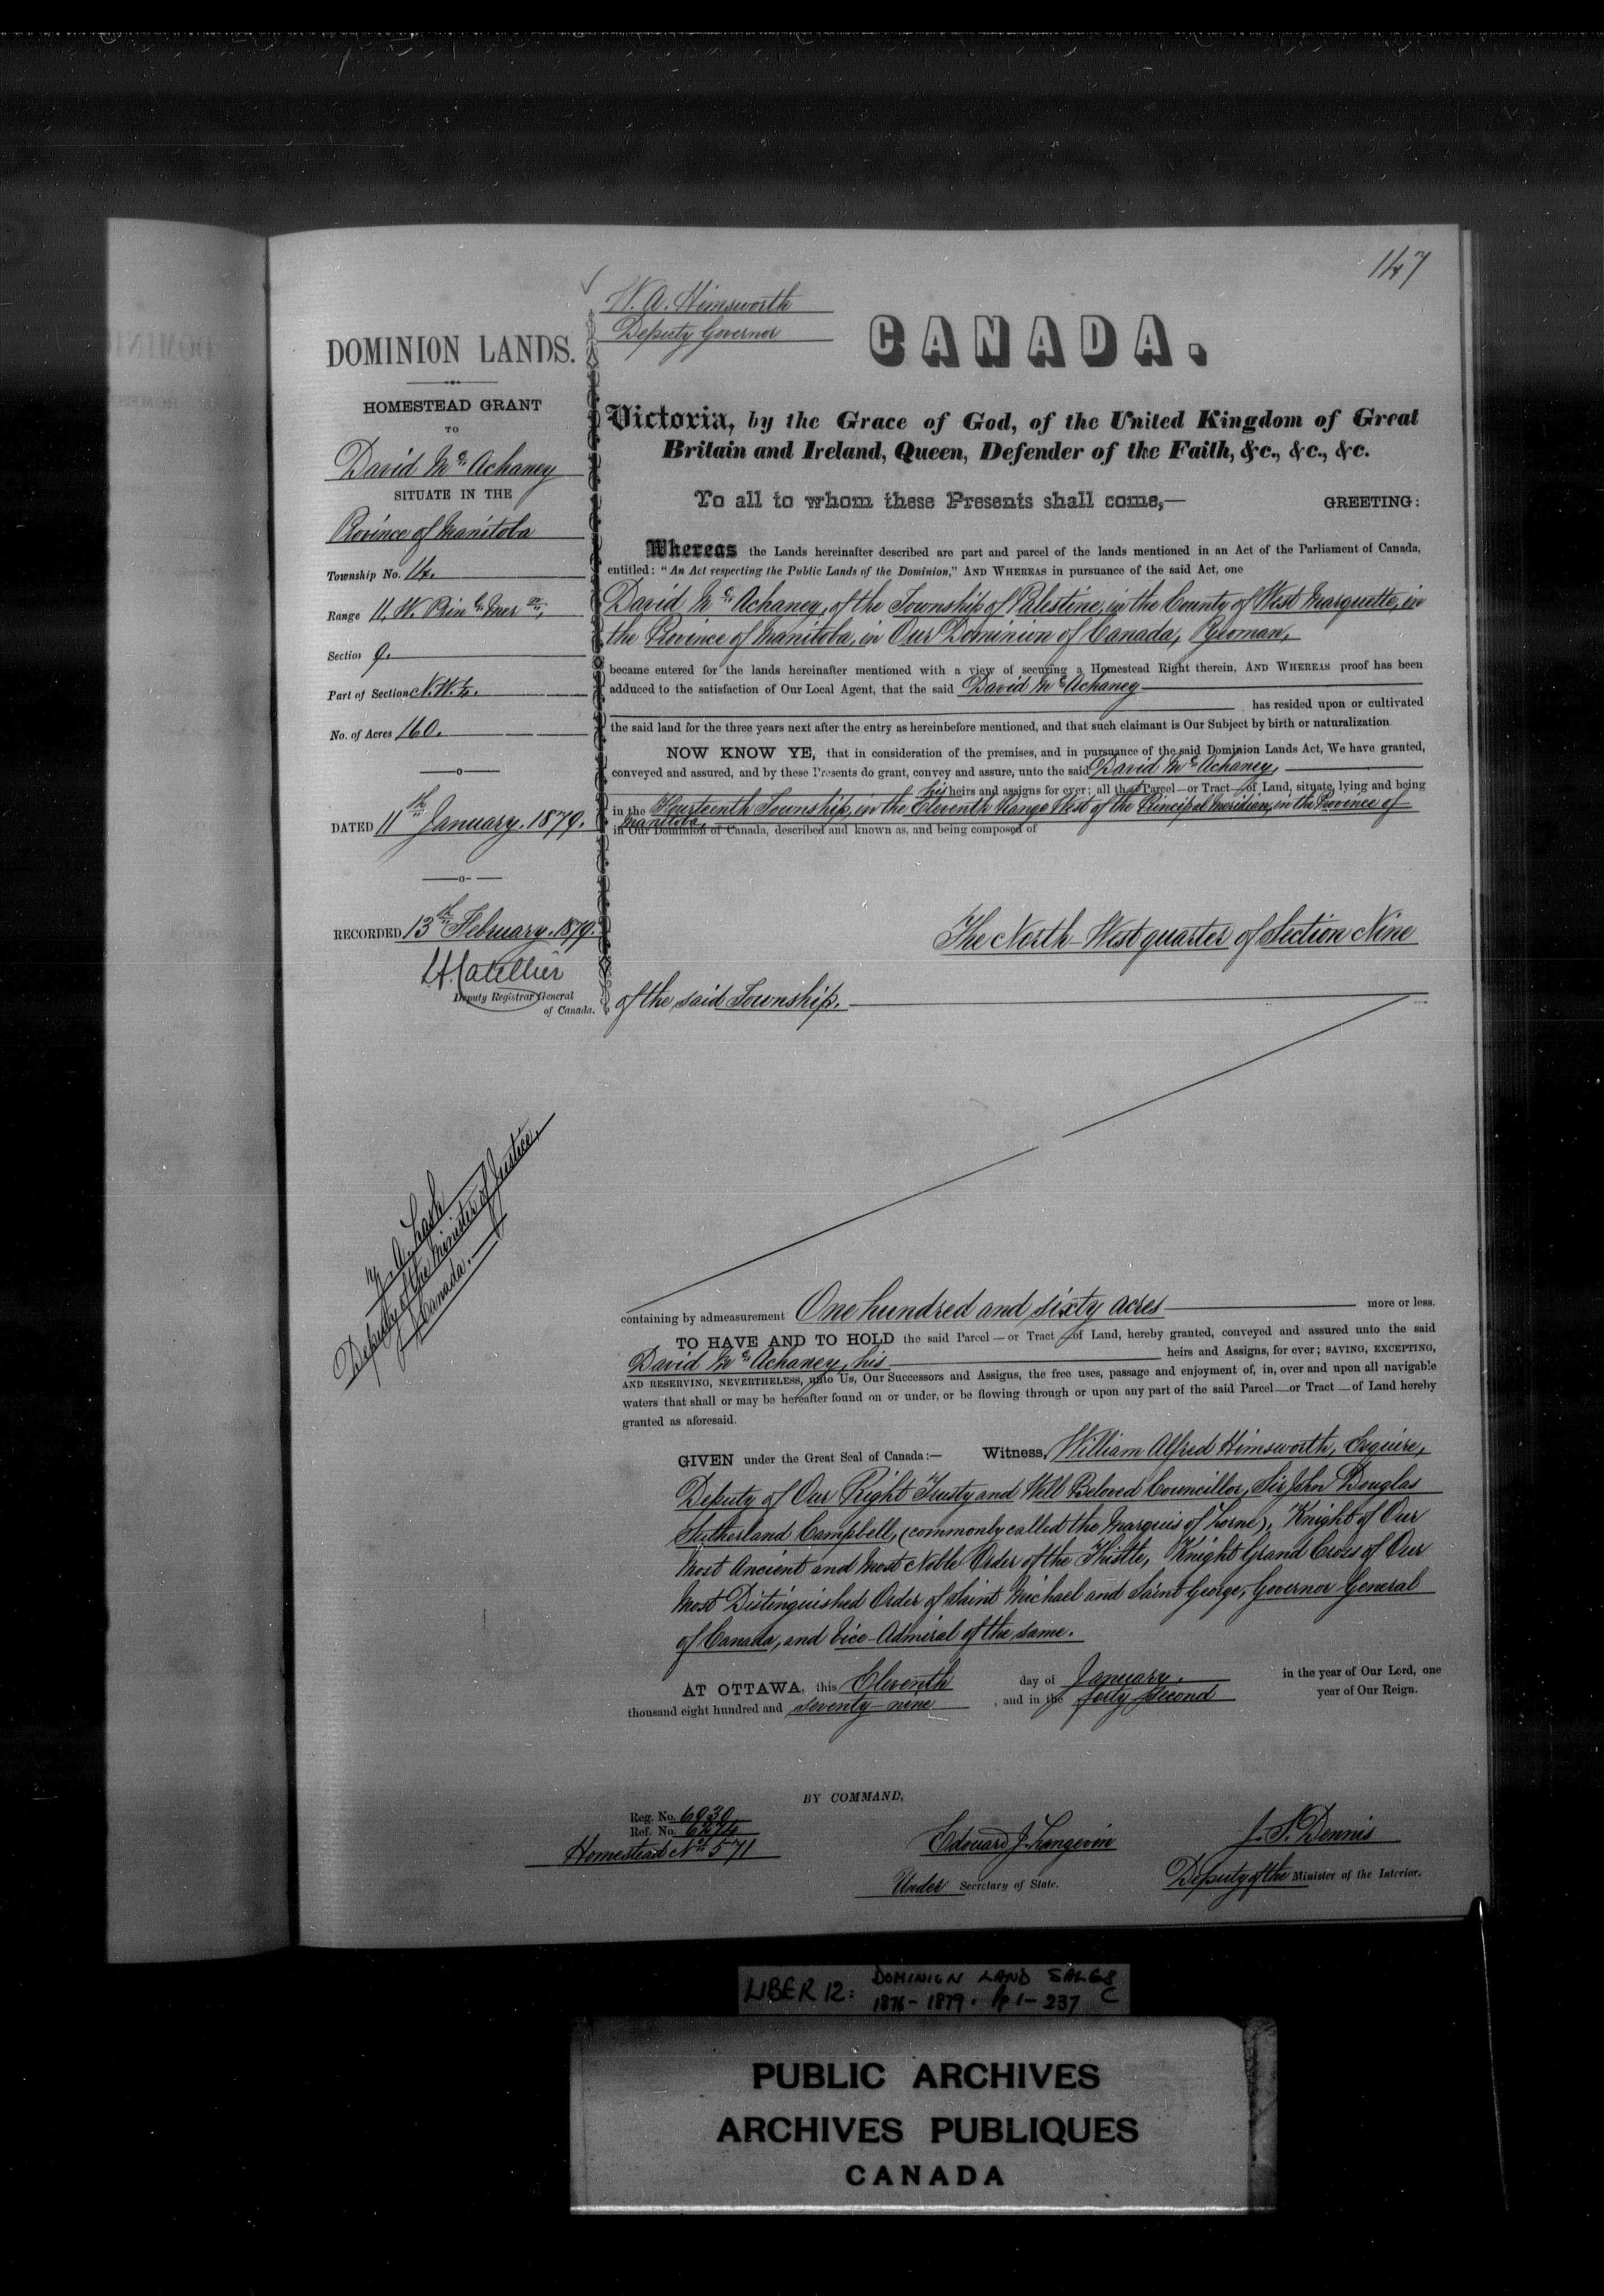 147
W. A. Himsworth
Deputy Governor
CANADA.
DOMINION LANDS.
HOMESTEAD GRANT
TO
David McAchaney
SITUATE IN THE
Province of Manitoba
Township No. 14.
Range 11. W. Prin l Mer n,
Section 9.
Part of Section N. W. 1/4.
No. of Acres 160.
DATED 11th January. 1879.
RECORDED 13th February. 1879.
Deputy Registrar General
of Canada.
Z. A. Lash
Deputy of the Minister of Justice,
Canada.
Victoria, by the Grace of God, of the United Kingdom of Great
Britain and Ireland, Queen, Defender of the Faith, &c., &c., &c.
To all to whom these Presents shall come,— GREETING:
Whereas the Lands hereinafter described are part and parcel of the lands mentioned in an Act of the Parliament of Canada,
entitled: "An Act respecting the Public Lands of the Dominion," AND WHEREAS in pursuance of the said Act, one
David McAchaney, of the Township of Palestine, in the County of West Marquette, in
the Province of Manitoba, in Our Dominion of Canada, Yeoman,
became entered for the lands hereinafter mentioned with a view of securing a Homestead Right therein, AND WHEREAS proof has been
adduced to the satisfaction of Our Local Agent, that the said David McAchaney
has resided upon or cultivated
the said land for the three years next after the entry as hereinbefore mentioned, and that such claimant is Our Subject by birth or naturalization
NOW KNOW YE, that in consideration of the premises, and in pursuance of the said Dominion Lands Act, We have granted,
conveyed and assured, and by these Presents do grant, convey and assure, unto the said David McAchaney,
his heirs and assigns for ever; all that Parcel—or Tract—of Land, situate, lying and being
in the Fourteenth Township, in the Eleventh Range West of the Principal Meridian, in the Province of
Manitoba,
in Our Dominion of Canada, described and known as, and being composed of
The North-West quarter of Section Nine
of the said Township.
containing by admeasurement One hundred and sixty acres more or less.
TO HAVE AND TO HOLD the said Parcel—or Tract—of Land, hereby granted, conveyed and assured unto the said
David McAchaney, his heirs and Assigns, for ever; SAVING, EXCEPTING,
AND RESERVING, NEVERTHELESS, unto Us, Our Successors and Assigns, the free uses, passage and enjoyment of, in, over and upon all navigable
waters that shall or may be hereafter found on or under, or be flowing through or upon any part of the said Parcel—or Tract—of Land hereby
granted as aforesaid.
GIVEN under the Great Seal of Canada:— Witness, William Alfred Himsworth, Esquire,
Deputy of Our Right Trusty and Well Beloved Councillor, Sir John Douglas
Sutherland Campbell, (commonly called the Marquis of Lorne), Knight of Our
Most Ancient and Most Noble Order of the Thistle, Knight Grand Cross of Our
Most Distinguished Order of Saint Michael and Saint George, Governor General
of Canada, and Vice-Admiral of the same.
AT OTTAWA, this Eleventh day of January, in the year of Our Lord, one
thousand eight hundred and seventy-nine, and in the forty second year of Our Reign.
BY COMMAND,
Reg. No. 6930
Ref. No. 6274
Homestead No 571
Edouard J. Langevin
Under Secretary of State.
J. S. Dennis
Deputy of the Minister of the Interior.
LIBER 12: DOMINION LAND SALES
1876-1879. Pp 1-237 C
PUBLIC ARCHIVES
ARCHIVES PUBLIQUES
CANADA